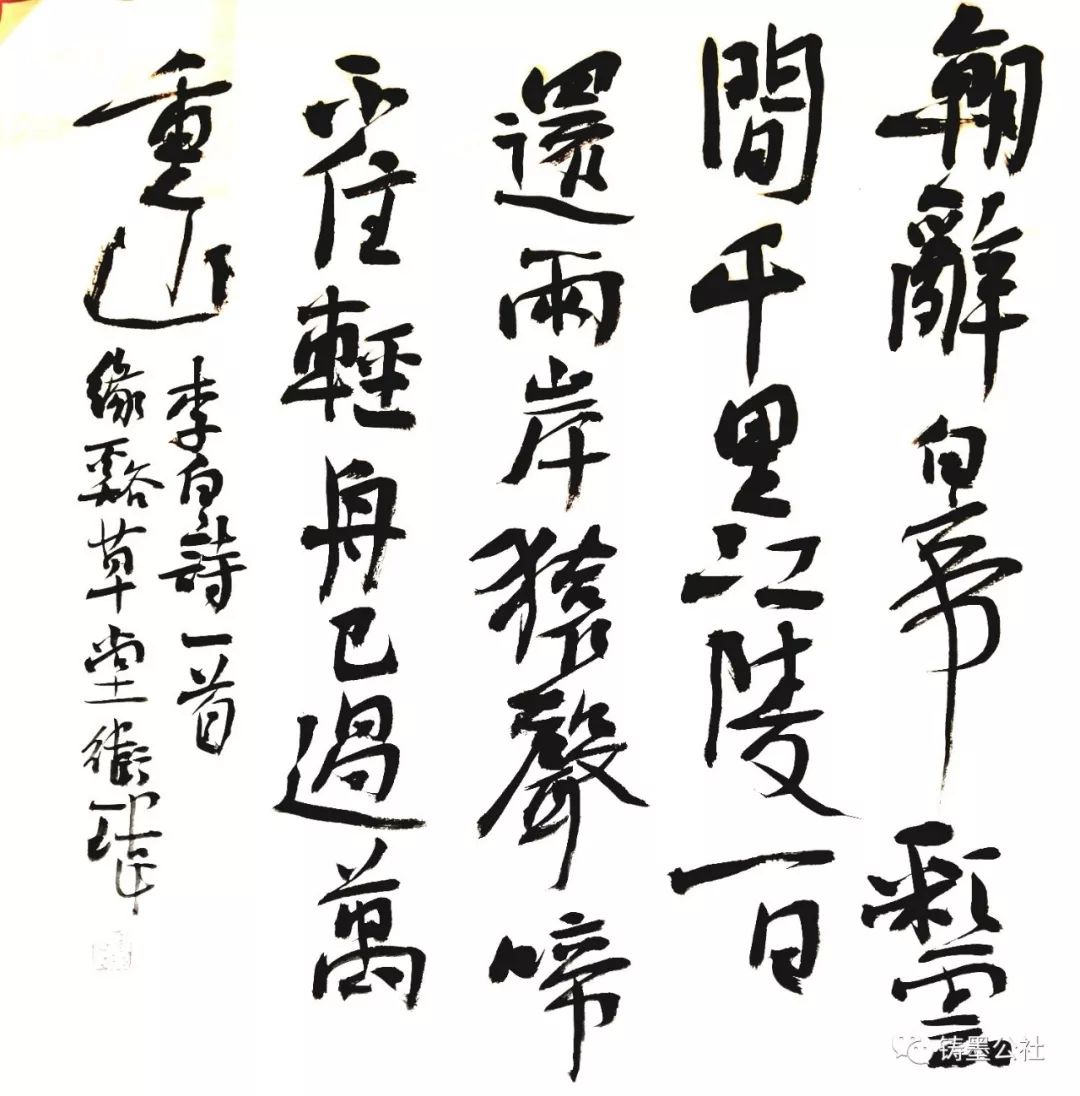 朝辭白帝彩雲
間千里江陵一日
還兩岸猿聲啼
不住輕舟已過萬
重山
李白詩一首
緣谿草堂衛
铸墨公社